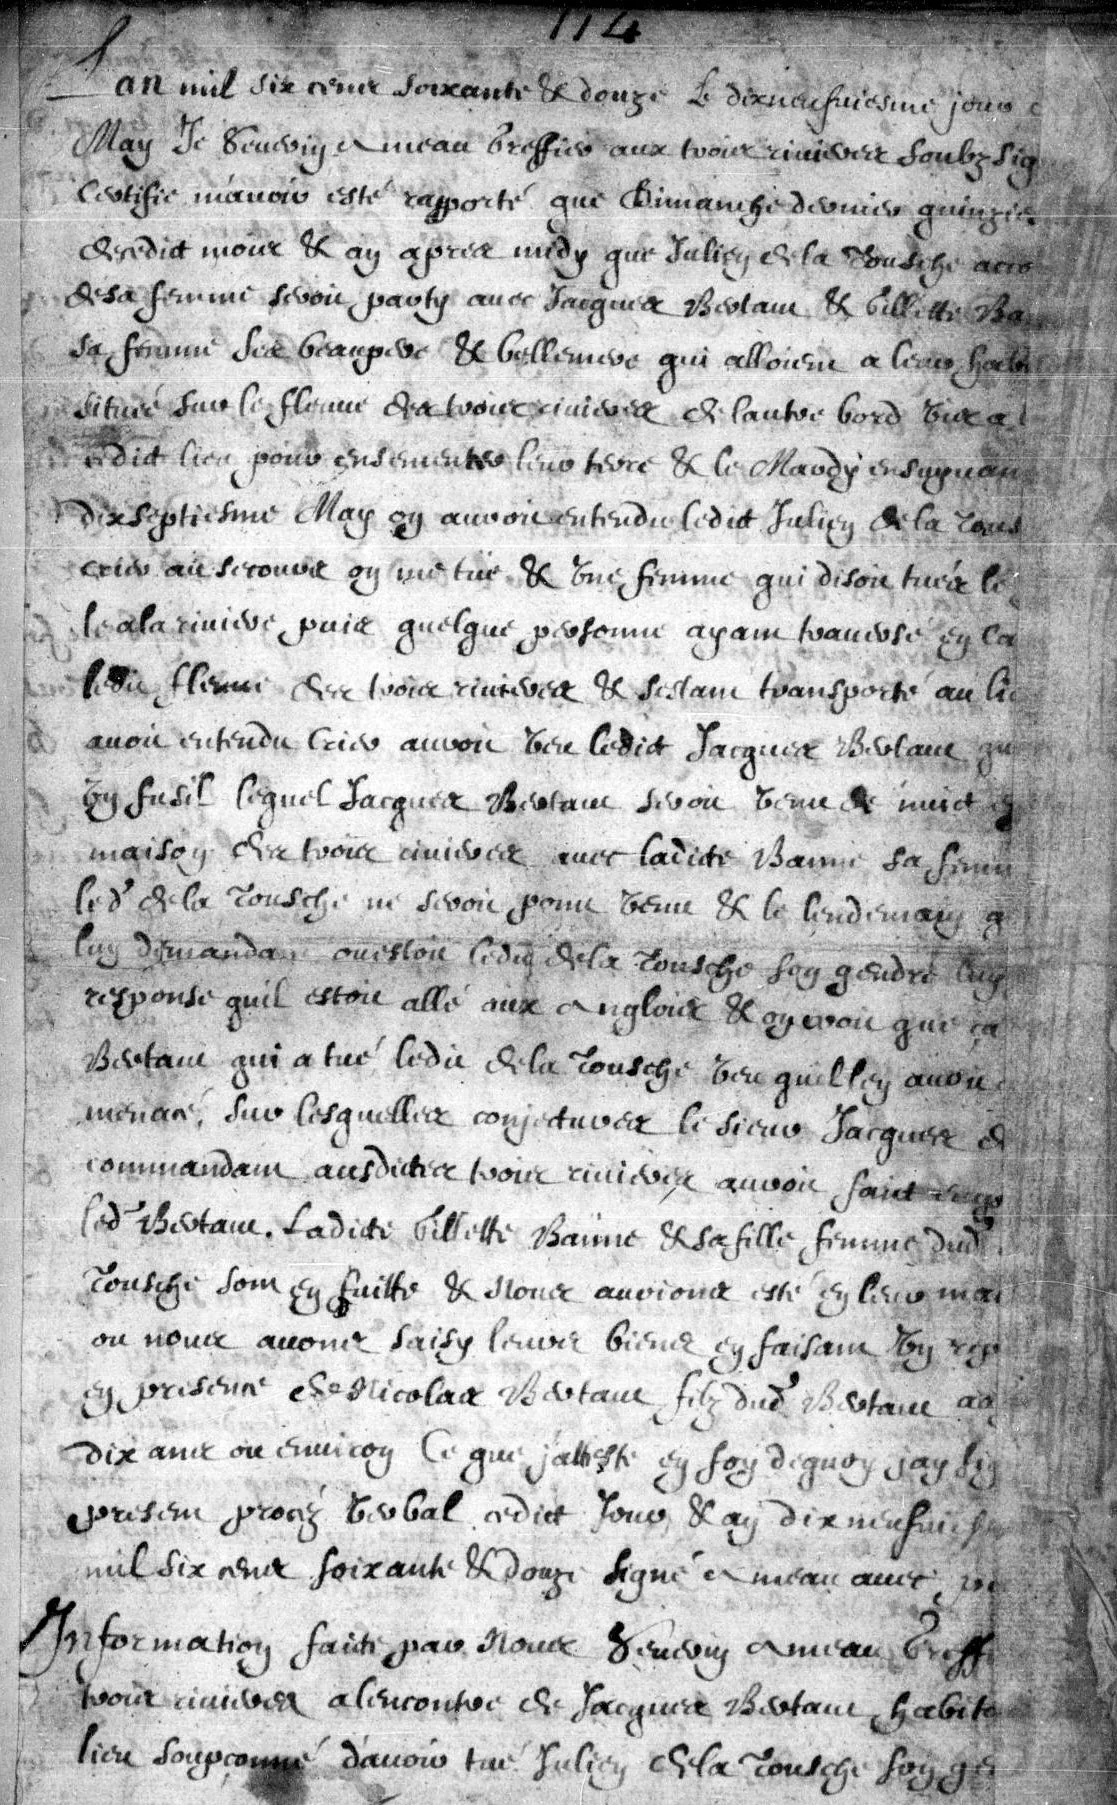 114
Lan mil six cens soixante & douze le dixneufuiesme jour
May Je Seuerin Ameau Greffier aux trois riuieres soubzsig
Certifie mauoir esté rapporté que Dimanche dernier quinzie
decedict mois & an apres midy que Julien de la Tousche acco
de sa femme seroit party auec Jacques Bertaut & Gillette Ba
sa femme ses beaupere & bellemere qui alloient a leur habi
situeé sur le fleuue des trois riuieres de lautre bord vis a
cedict lieu pour ensementer leur terre & le Mardy ensuyuan
dixseptiesme May on auroit entendu ledict Julien de la Tous
crier au secours on me tue & vne femme qui disoit tués le
le a la riuiere puis quelque personne ayant trauersé en ca
ledit fleuue des trois riuieres & sestant transporté au lie
auoit entendu Crier auroit veu ledict Jacques Bertaut
vn fusil lequel Jacques Bertaut seroit venu de nuict
maison des trois riuieres auec ladicte Banne sa femm
led de la Tousche ne seroit point venu & le lendemain
luy demandant ou estoit ledit de la Tousche son gendre luy
response quil estoit allé aux Anglois & on croit que ça
Bertaut qui a tué ledit de la Tousche veu quil len auoit
menacé, sur lesquelles conjectures le sieur Jacques
commandant ausdictes trois riuieres auroit faict
led Bertaut. Ladicte Gillette Banne & sa fille femme dud
Tousche sont en fuitte & Nous aurions esté en leur mai
ou nous auons saisy leurs biens en faisant vn
en presence de Nicolas Bertaut filz dud Bertaut aag
dix ans ou enuiron Ce que jatteste en foy dequoy jay sig
present procez verbal cedict Jour & an dixneufuiesm
mil six cens soixante & douze signé Ameau auec
Information faicte par Nous Seuerin Ameau Greff
trois riuieres a lencontre de Jacques Bertaut habita
lieu soupçonné dauoir tué Julien de la Tousche son ge